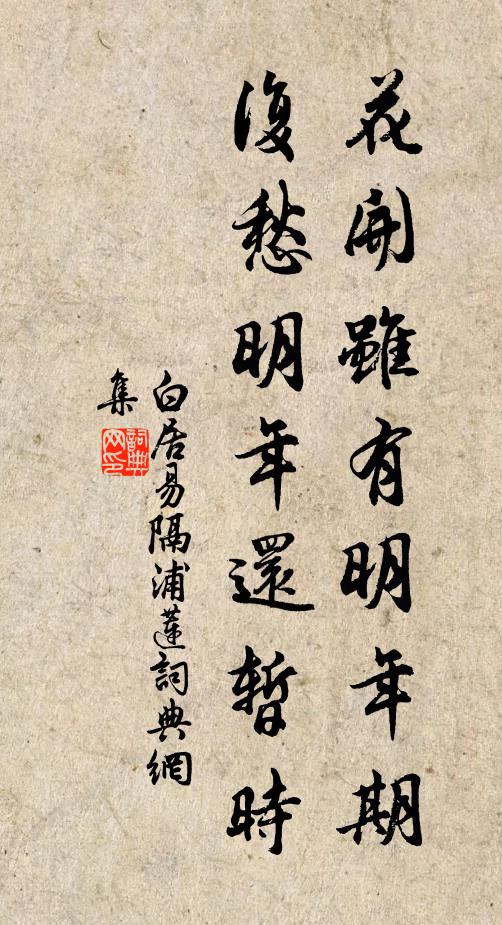 花開雖有明年期
復愁明年還暫時
白居易隔浦蓮詞典網
集
詞典
网印